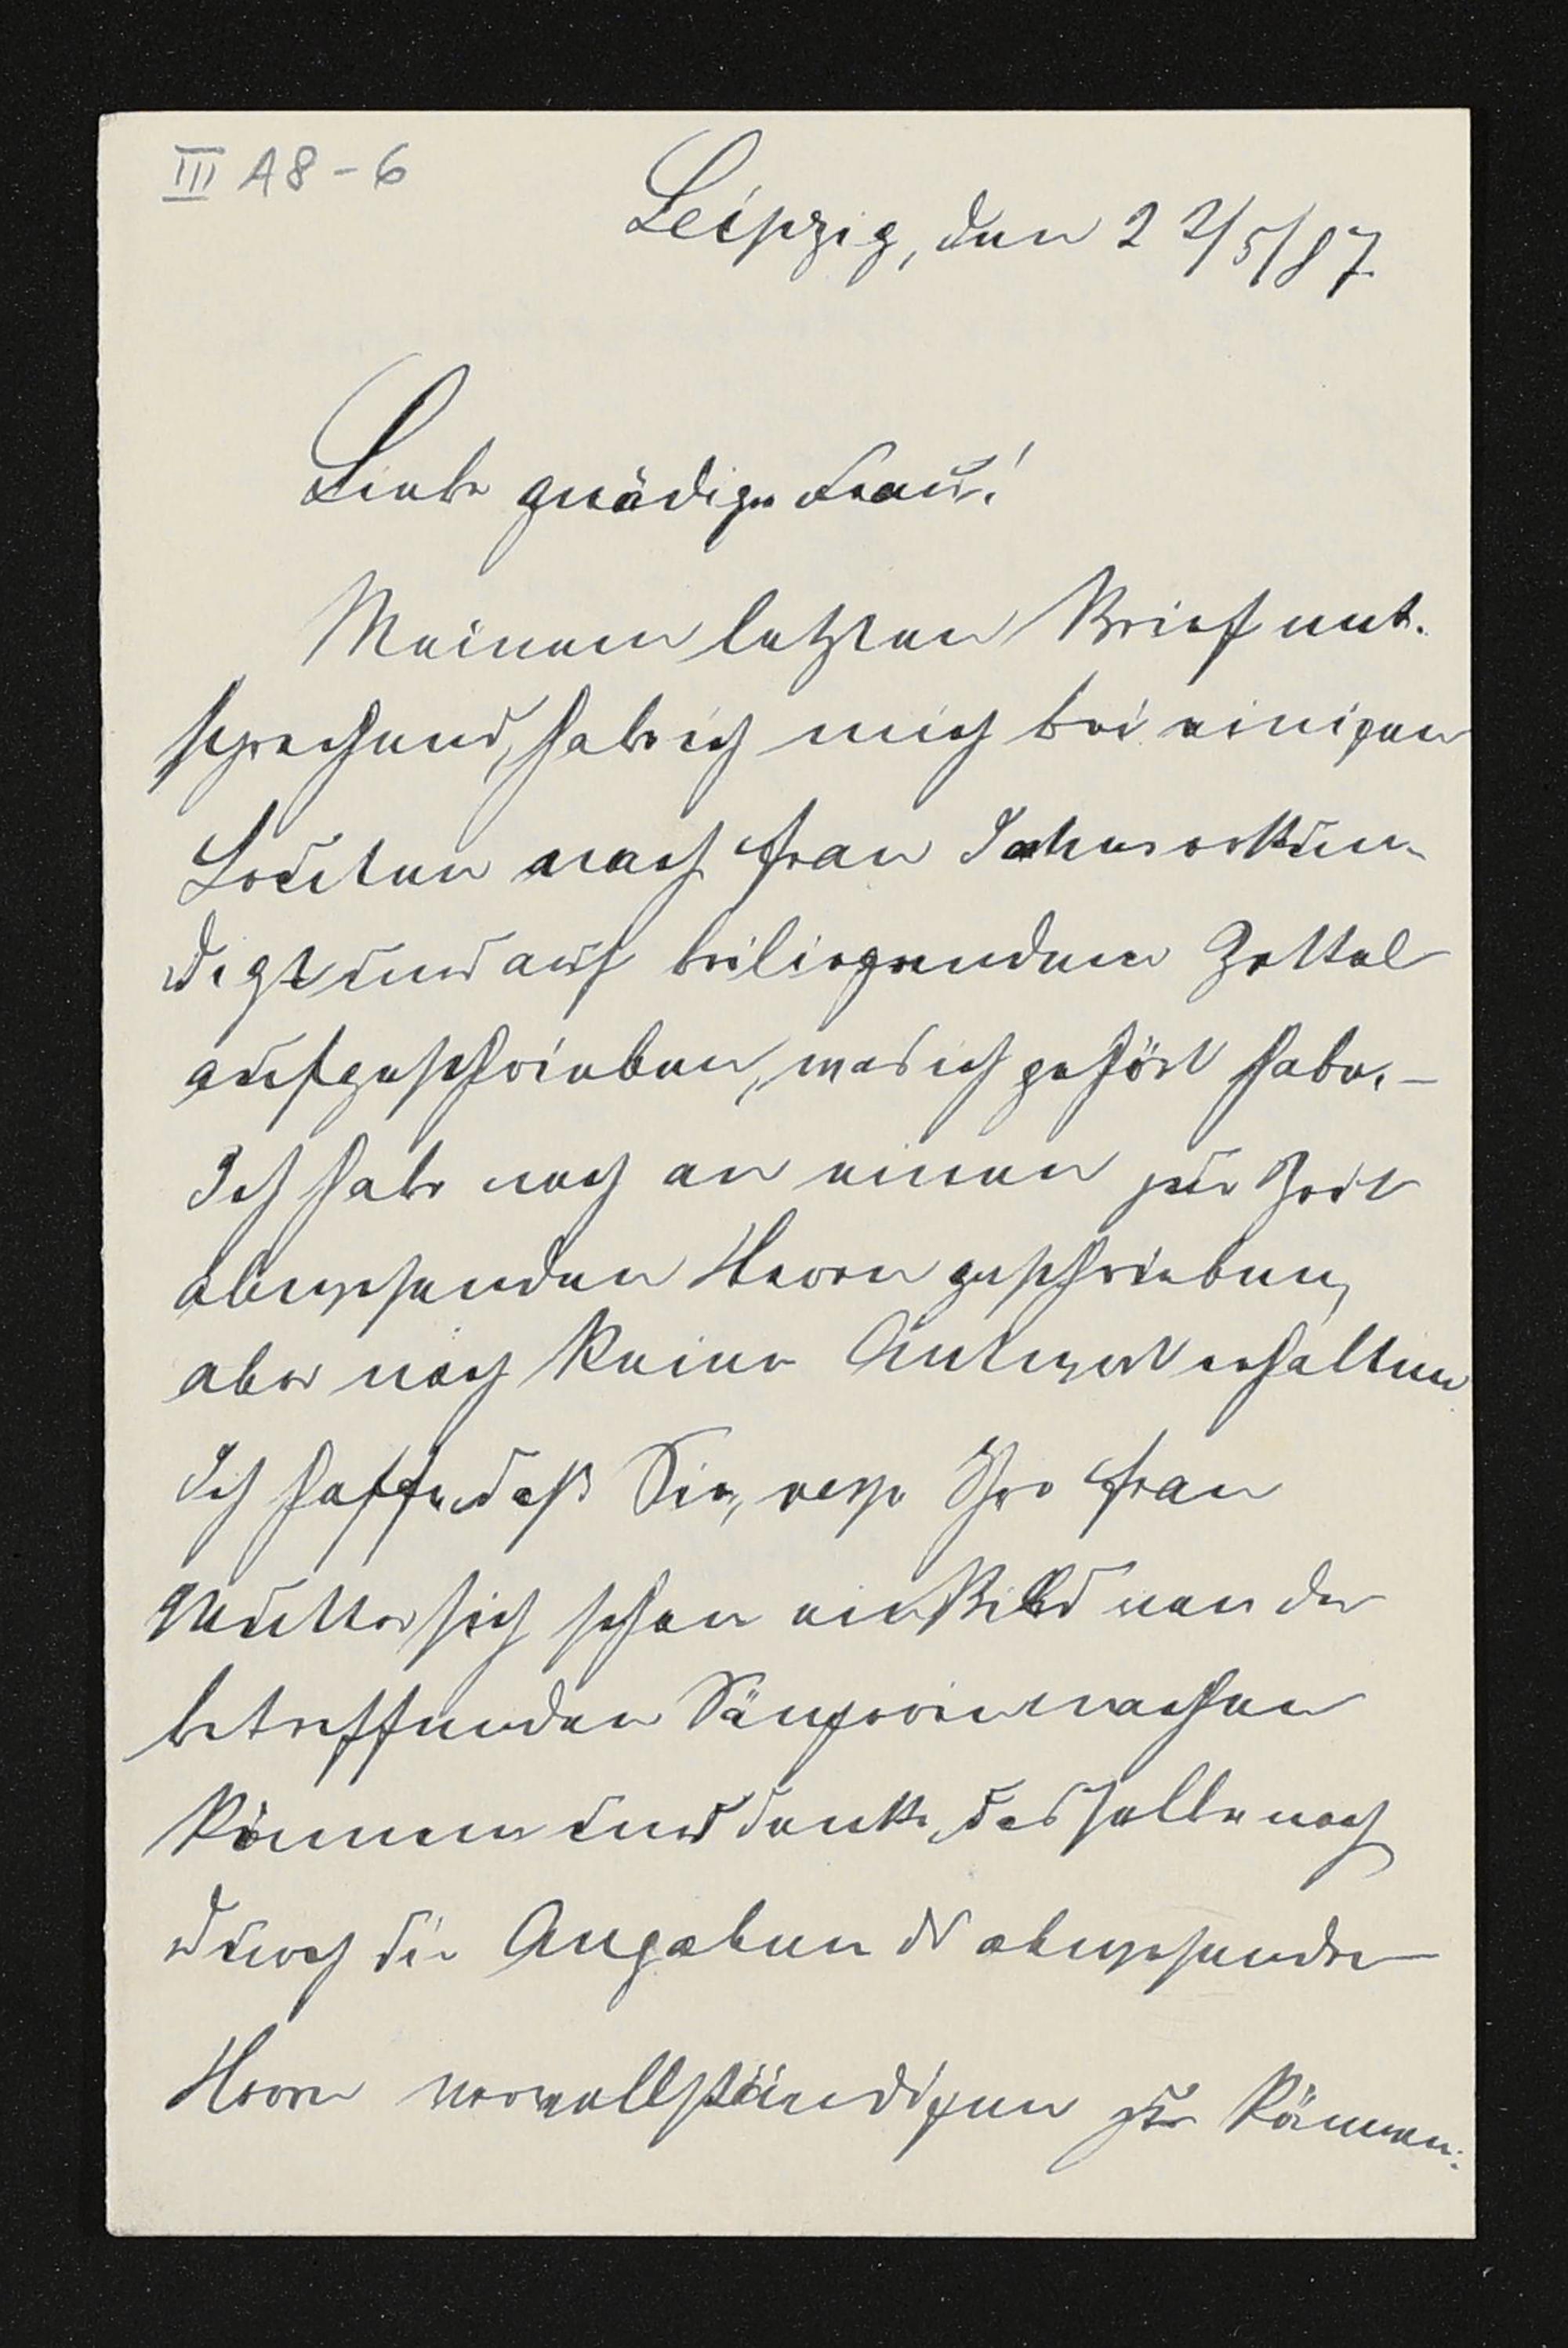 III A8-6
Leipzig, den 22/5/87
Liebe gnädige Frau!
Meinem letzten Brief ent-
sprechend, habe ich mich bei einigen
Leuten nach Frau Jahns erkun-
digt und auf beiliegendem Zettel
aufgeschrieben, was ich gehört habe. –
Ich habe noch an einen zur Zeit
abwesenden Herrn geschrieben,
aber noch keine Antwort erhalten
Ich hoffe, daß Sie, resp. Ihre Frau
Mutter sich schon ein Bild von der
betreffenden Sängerin machen
können und denke, dasselbe noch
durch die Angaben d abwesenden
Herrn vervollständigen zu können.